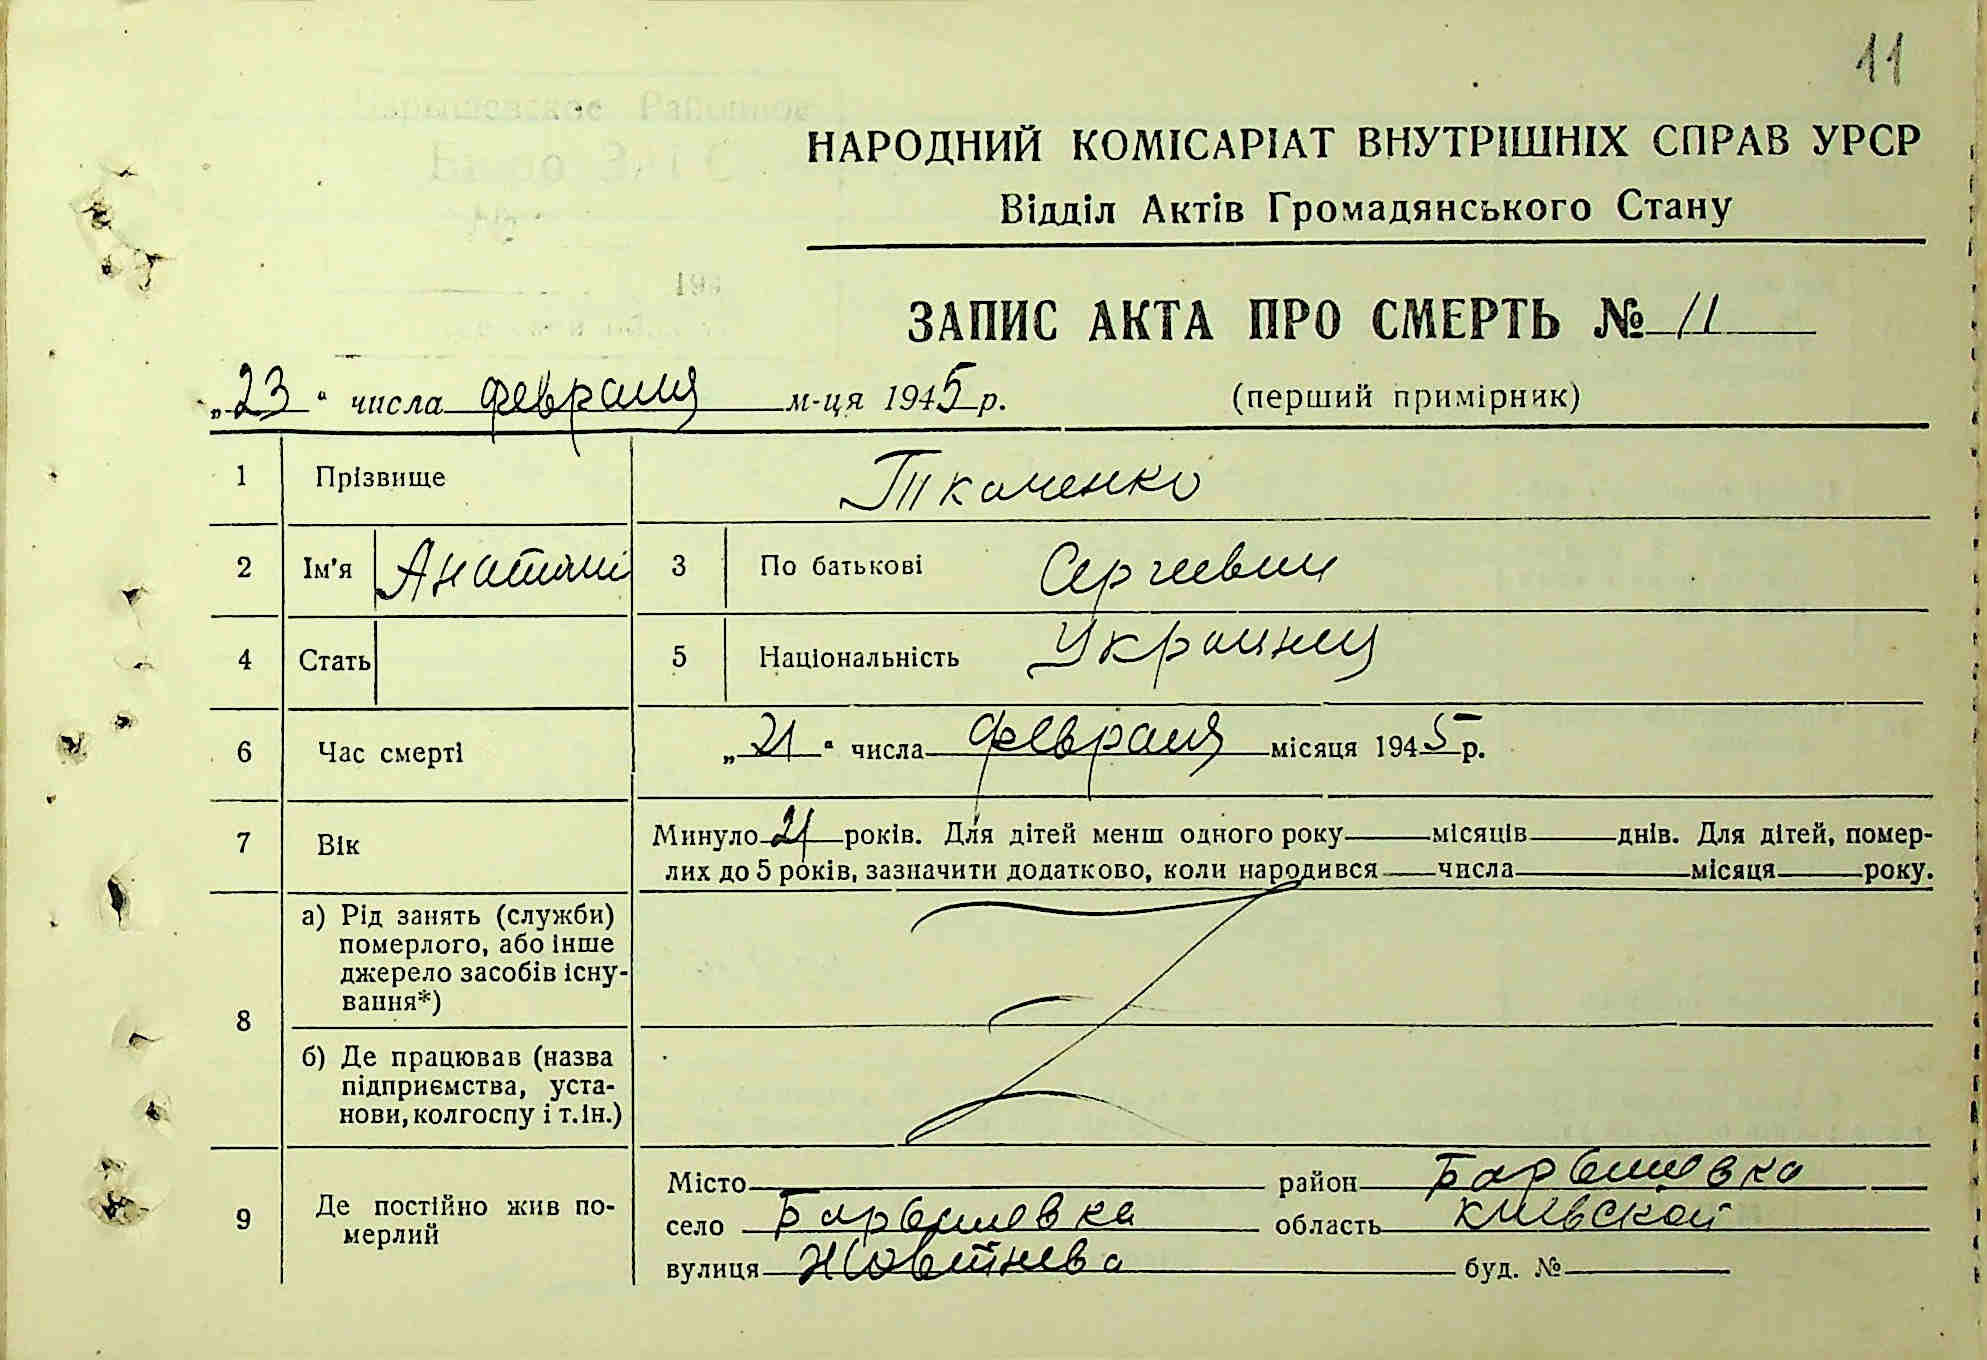 11
НАРОДНИЙ КОМІСАРІАТ ВНУТРІШНІХ СПРАВ УРСР
Відділ Актів Громадянського Стану
ЗАПИС АКТА ПРО СМЕРТЬ № 11
„23“ числа февраля м-ця 1945 р. (перший примірник)
1 Прізвище Ткаченко
2 Ім'я Анатолій 3 По батькові Сергеевич
4 Стать 5 Національність Украинец
6 Час смерті „21“ числа февраля місяця 1945 р.
7 Вік Минуло 21 років. Для дітей менш одного року місяців днів. Для дітей, помер-
лих до 5 років, зазначити додатково, коли народився числа місяця року.
8 а) Рід занять (служби)
померлого, або інше
джерело засобів існу-
вання*)
б) Де працював (назва
підприємства, уста-
нови, колгоспу і т.ін.)
9 Де постійно жив по-
мерлий
Місто район Барышевка
село Барышевка область Киевской
вулиця Жовтнева буд. №